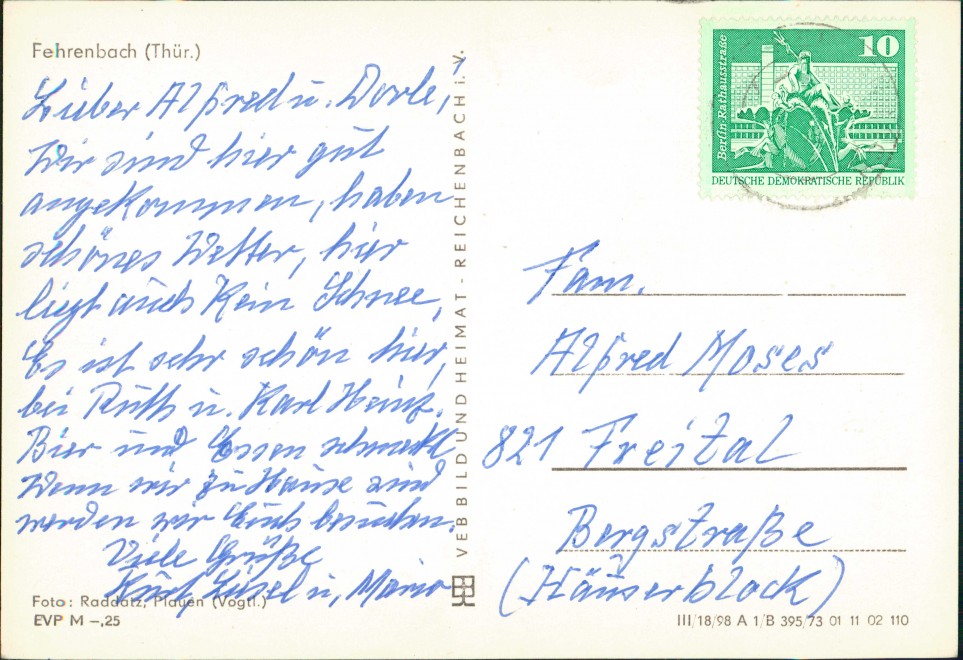 Fehrenbach (Thür.)
Lieber Alfred u. Dorle,
Wir sind hier gut
angekommen, haben
schönes Wetter, hier
liegt auch kein Schnee,
Es ist sehr schön hier,
bei Ruth u. Karl Heinz.
Bier und Essen schmeckt
Wenn wir zu Hause sind
werden wir Euch besuchen.
Viele Grüße
Kurt, Liesel u, Mario
Foto: Raddatz, Plauen (Vogtl.)
EVP M –,25
VEB BILD UND HEIMAT - REICHENBACH I. V.
Berlin-Rathausstraße
10
DEUTSCHE DEMOKRATISCHE REPUBLIK
Fam.
Alfred Moses
821 Freital
Bergstraße
(Häuserblock)
III/18/98 A 1/B 395/73 01 11 02 110